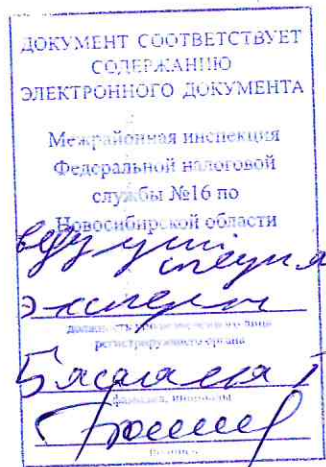 ДОКУМЕНТ СООТВЕТСТВУЕТ
СОДЕРЖАНИЮ
ЭЛЕКТРОННОГО ДОКУМЕНТА
Межрайонная инспекция
Федеральной налоговой
службы №16 по
Новосибирской области
эксперт
должность уполномоченного лица
регистрирующего органа
фамилия, инициалы
подпись